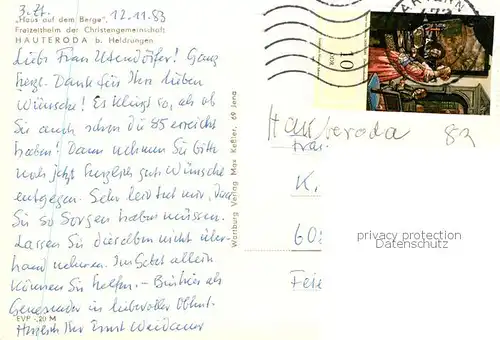 z. Zt. 12.11.83
„Haus auf dem Berge",
Freizeitheim der Christengemeinschaft
HAUTERODA b. Heldrungen
Liebe Frau Utendörfer! Ganz
herzl. Dank für Ihre lieben
Wünsche! Es klingt so, als ob
Sie auch schon die 85 erreicht
haben! Dann nehmen Sie bitte
noch jetzt herzlich gute Wünsche
entgegen. Sehr leid tut mir, daß
Sie so Sorgen haben müssen.
Lassen Sie dieselben nicht über-
hand nehmen. Im Gebet allein
können Sie helfen. –
in liebevoller
Herzlich Ihr Ernst
EVP -,20 M
Wartburg Verlag Max Keßler, 69 Jena
10
DDR
Hauteroda 83
Frau
K.
608
Feie
privacy protection
Datenschutz